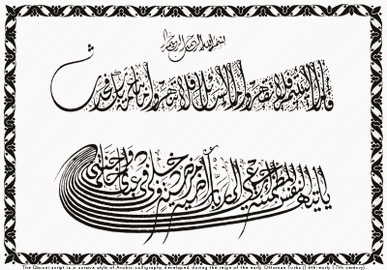 بسم الله الرحمن الرحيم
فأما اليتيم فلا تقهر وأما السائل فلا تنهر وأما بنعمة ربك فحدث
يا ايتها النفس المطمئنة ارجعي الى ربك راضية مرضية فادخلي في عبادي وادخلي جنتي
The Diwani script is a cursive style of Arabic calligraphy developed during the reign of the early Ottoman Turks (16th-early 17th century).